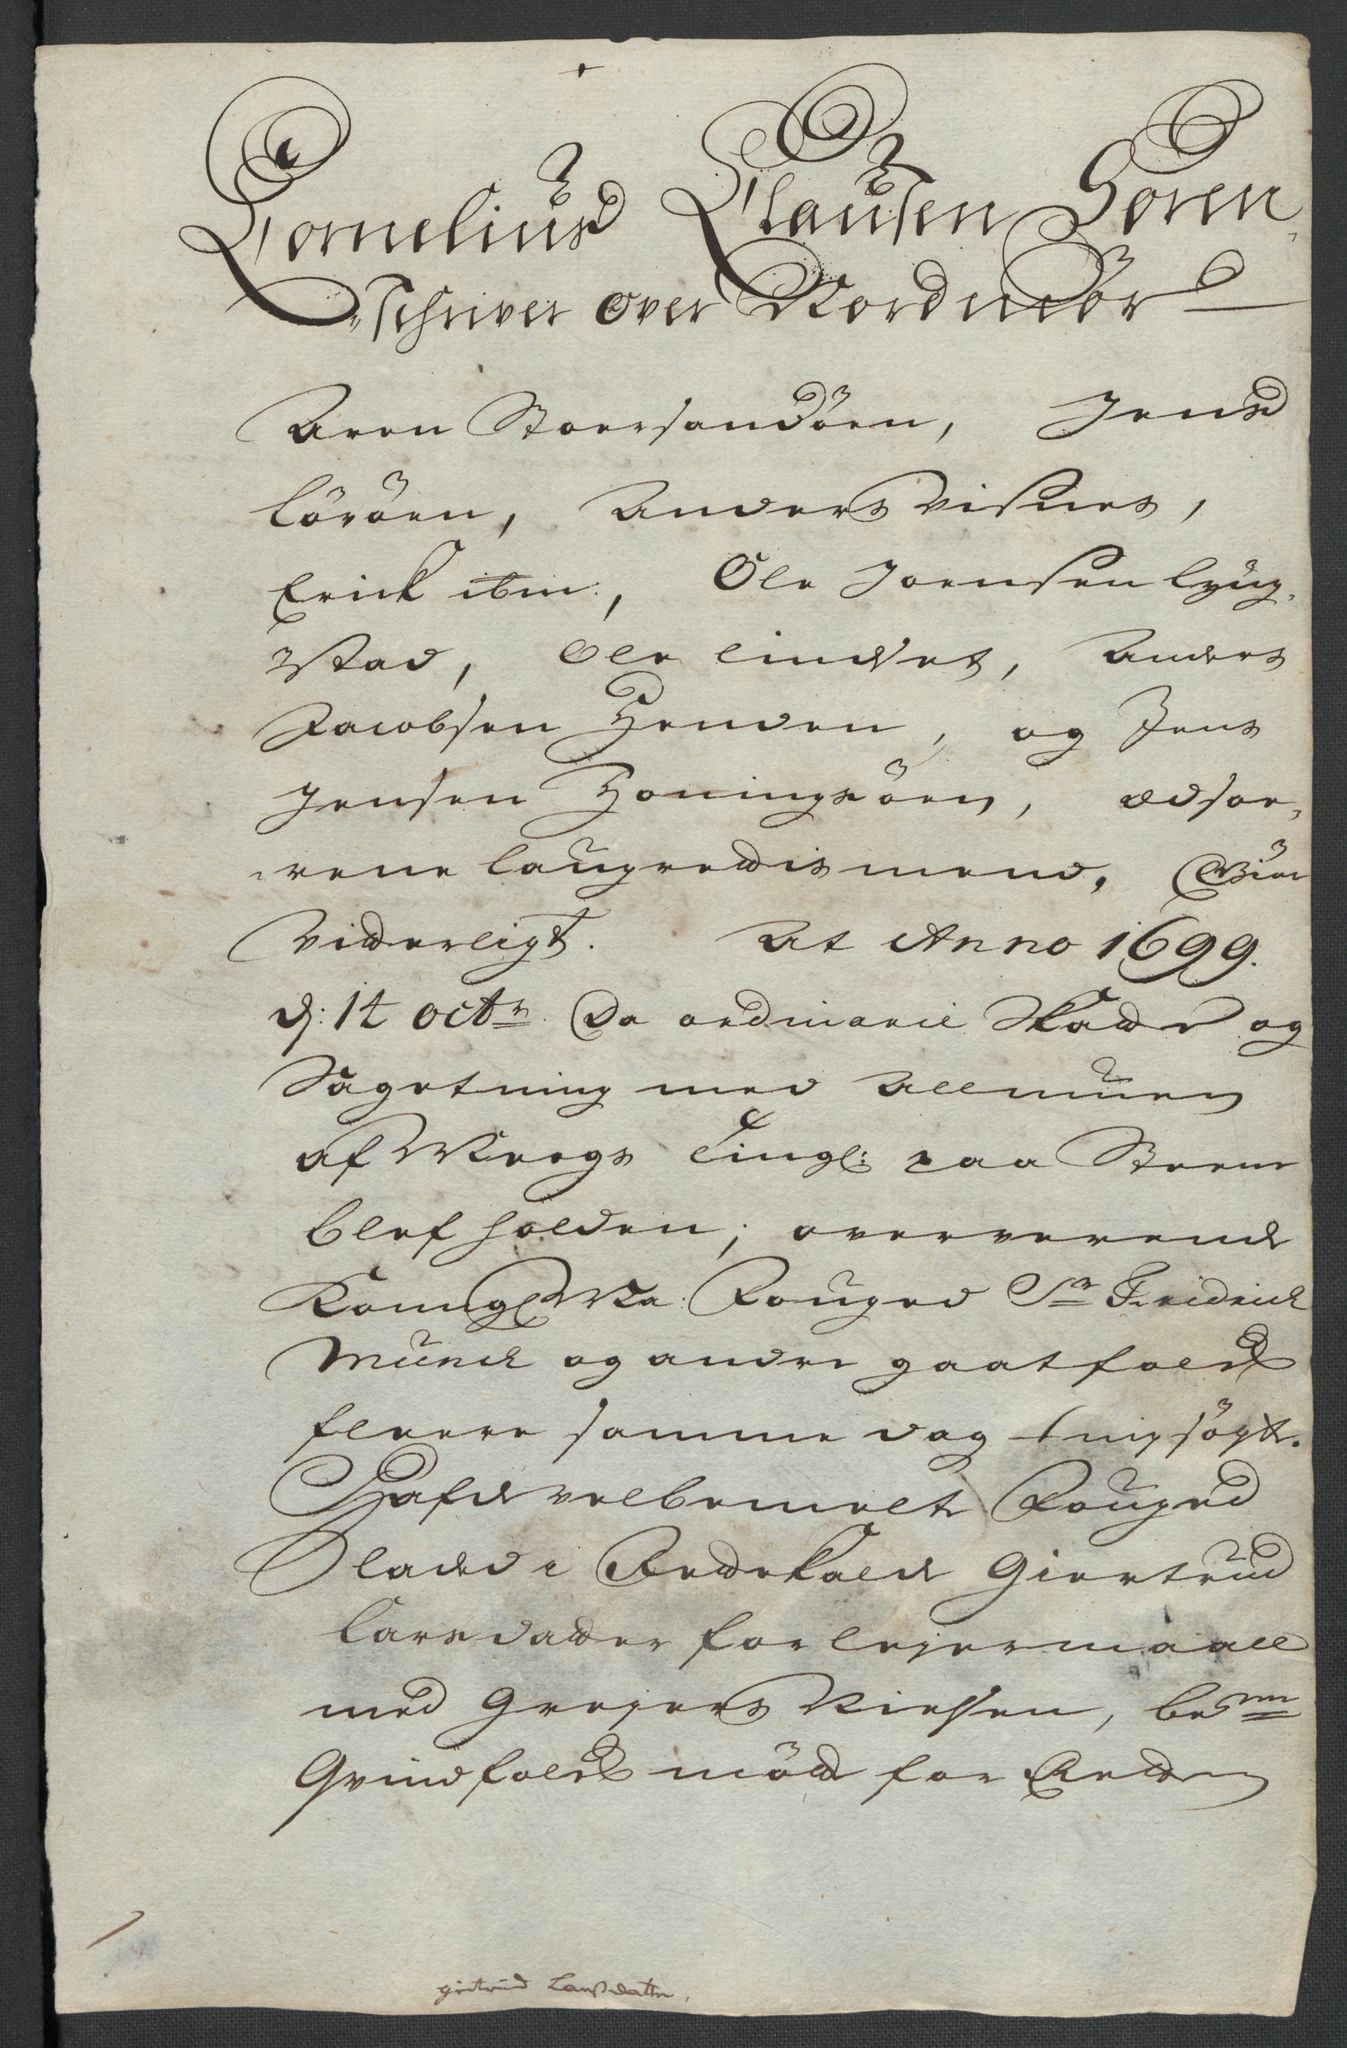 Cornelius Clausen Soren-
schriver over Nordmør
Aren Stoersandøen, Jens
Lörøen, Anders Visnes,
Erick ibm:, Ole Joensen Lyng-
stad, Ole Lindset, Anders
Jacobsen Henden, og Jens
Jensen Honingsöen, edsor-
rene laugrettis mend, Giør
Vitterligt. At Anno 1699.
d: 14 octr Da ordinarie Skatte og
Sagetning med Allmuen
af Tingl: paa Steene
blef holden, oververende
Kongl Ma: Fouged Sr Fridrich
Münch og andre gaatfolck
fleere samme dag tingsögte.
Hafde velbemelte Fouged
Ladet i Rettekalde Giertrud
Larsdatter for lejermaall
med Grejers Nielsen, bemte
Qvindfolck mötte for Retten
giertrud Larsdatter.